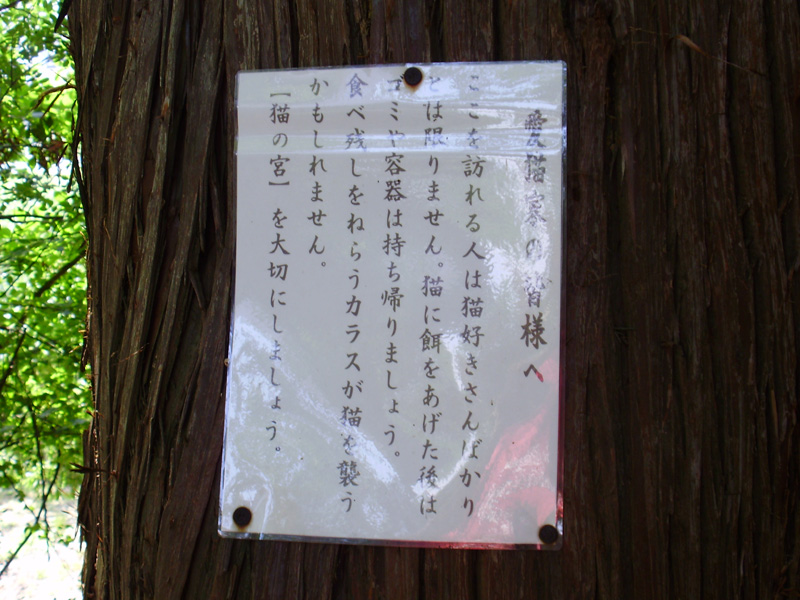 愛猫家の皆様へ
ここを訪れる人は猫好きさんばかり
とは限りません。猫に餌をあげた後は
ゴミや容器は持ち帰りましょう。
食べ残しをねらうカラスが猫を襲う
かもしれません。
【猫の宮】を大切にしましょう。